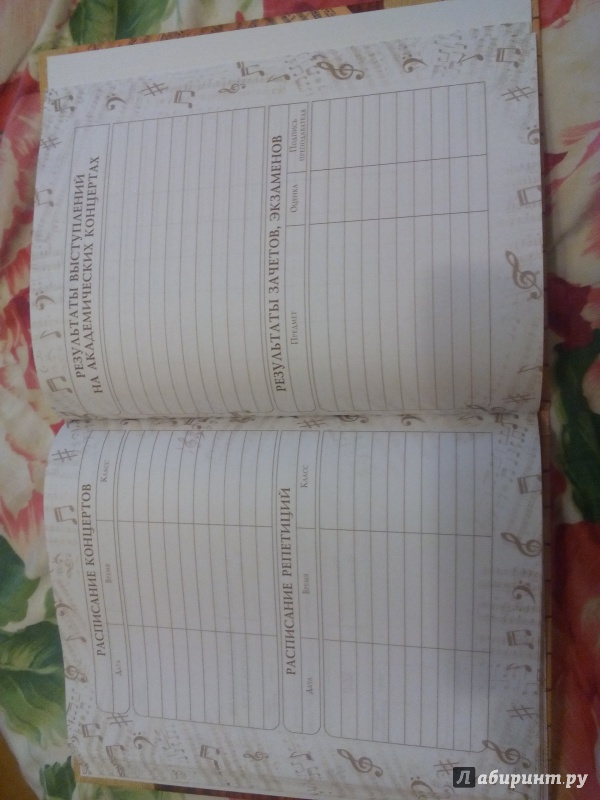 РАСПИСАНИЕ КОНЦЕРТОВ
Дата Время Класс
РАСПИСАНИЕ РЕПЕТИЦИЙ
Дата Время Класс
РЕЗУЛЬТАТЫ ВЫСТУПЛЕНИЙ
НА АКАДЕМИЧЕСКИХ КОНЦЕРТАХ
РЕЗУЛЬТАТЫ ЗАЧЕТОВ, ЭКЗАМЕНОВ
Предмет Оценка Подпись
преподавателя
Лабиринт.ру